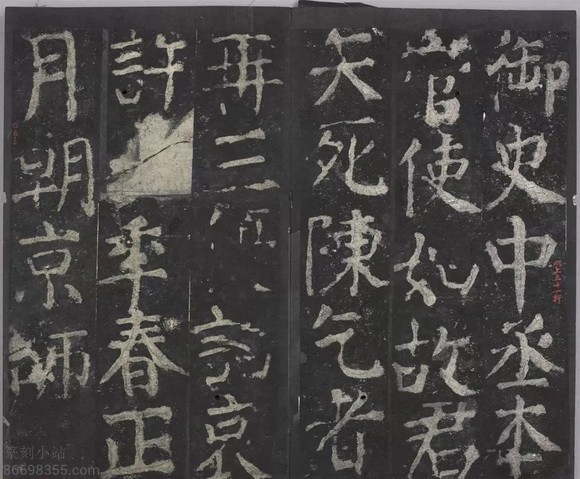 御史中丞本
管使如故君
矢死陳乞者
再三詔哀
許年春正
月朝京師
篆刻小站
86698355.com